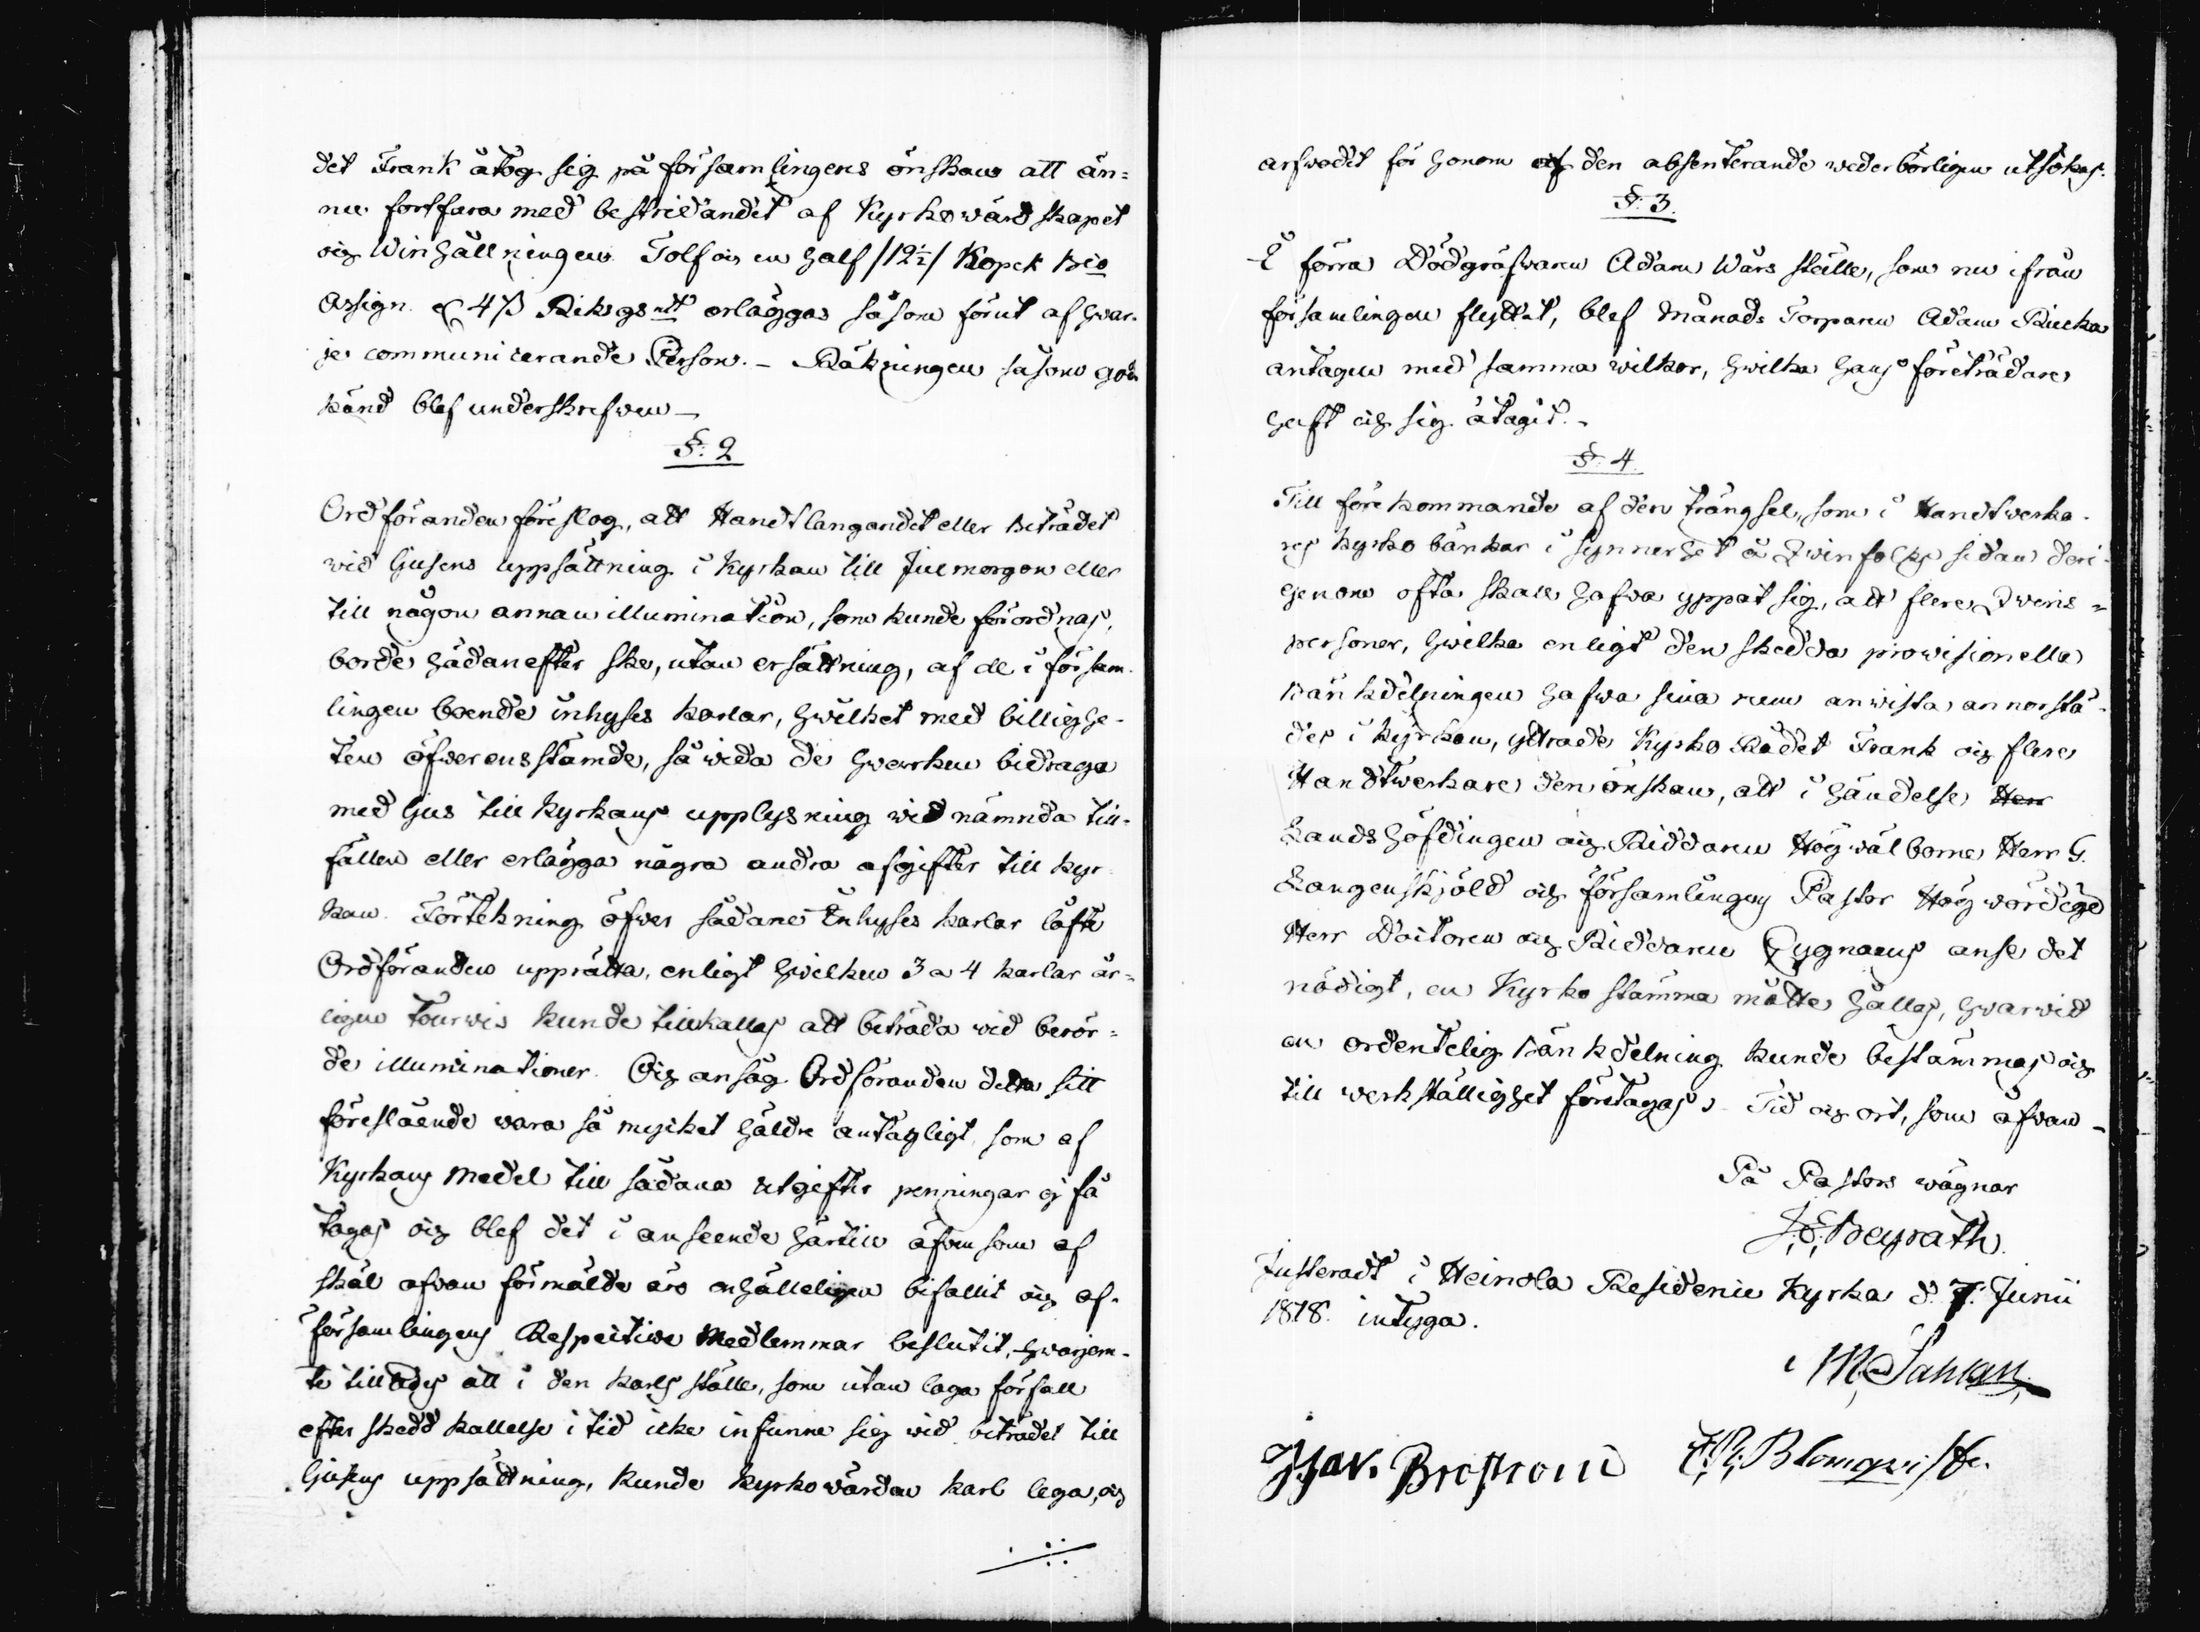 det Frank åtog sig på församlingens önskan att än=
nu fortfara med bestridandet af Kyrkowärdskapet
och Winhållningen. Tolf och en half /12½/ Kopek Bco
Assign. & 4 ß Riksgs rtt erläggas såsom förut af hwar-
je communicerande Person. – Räkningen såsom god-
känd blef underskrefwen –
§: 2
Ordföranden föreslog, att Handtlangandet eller biträdet
wid ljusens uppsättning i Kyrkan till Julmorgon eller
till någon annan illumination, som kunde förordnas,
borde hädanefter ske, utan ersättning, af de i försam-
lingen boende inhyses karlar, hwilket med billighe-
ten öfwerensstämde, så wida de hwarken bidraga
med ljus till Kyrkans upplysning wid nämnda till-
fällen eller erlägga några andra afgifter till Kyr-
kan. Förtekning öfwer sådane Inhyses karlar låfte
Ordföranden upprätta, enligt hwilken 3 a 4 karlar är=
ligen tourwis kunde tillkallas att biträda wid berör=
de illuminationer. Och ansåg Ordföranden detta sitt
föreslående wara så mycket häldre antagligt, som af
Kyrkans medel till sådana utgifter penningar ej få
tagas och blef det i anseende härtill äfwen som af
skäl ofwan förmälde äro enhälleligen bifallit och af
församlingens Respective Medlemmar beslutit, hwarjem-
te tillades att i den karls ställe, som utan laga förfall
efter skedd kallelse i tid icke infunne sig wid biträdet till
ljusens uppsättning, kunde kyrkowärden karl lega, och
arfwodet för honom af den absenterande wederbörligen utsökas.
§: 3.
I förra Dödgräfwaren Adam Wårs ställe, som nu ifrån
församlingen flyttat, blef Månads Torparen Adam
antagen med samma wilkor, hwilka hans företrädare
haft och sig åtagit. –
§: 4.
Till förekommande af den trängsel, som i Handtwerka-
res kyrko bänkar i synnerhet å Qwinfolks sidan deri-
genom ofta skall hafwa yppat sig, att flere Qwins=
personer, hwilka enligt den skedda provisionella
Bänkdelningen hafwa sina rum anwista annorstä-
des i kyrkan, yttrade Kyrko Rådet Frank och flere
Handtwerkare den önskan, att i händelse Herr
Landshöfdingen och Riddaren Högwälborne Herr G.
Langenskjöld och församlingens Pastor Högwördige
Herr Doctoren och Riddaren Cygnaeus anse det
nödigt, en Kyrko stämma måtte hållas, hwarwid
en ordentelig Bänkdelning kunde bestämmas och
till werkställighet företagas. Tid och ort, som ofwan –
På Pastors wägnar
J. E. Beyrath.
Justeradt i Heinola Residence Kyrka d. 7. Junii
1818. intyga.
M.
Broström
Blomqwist